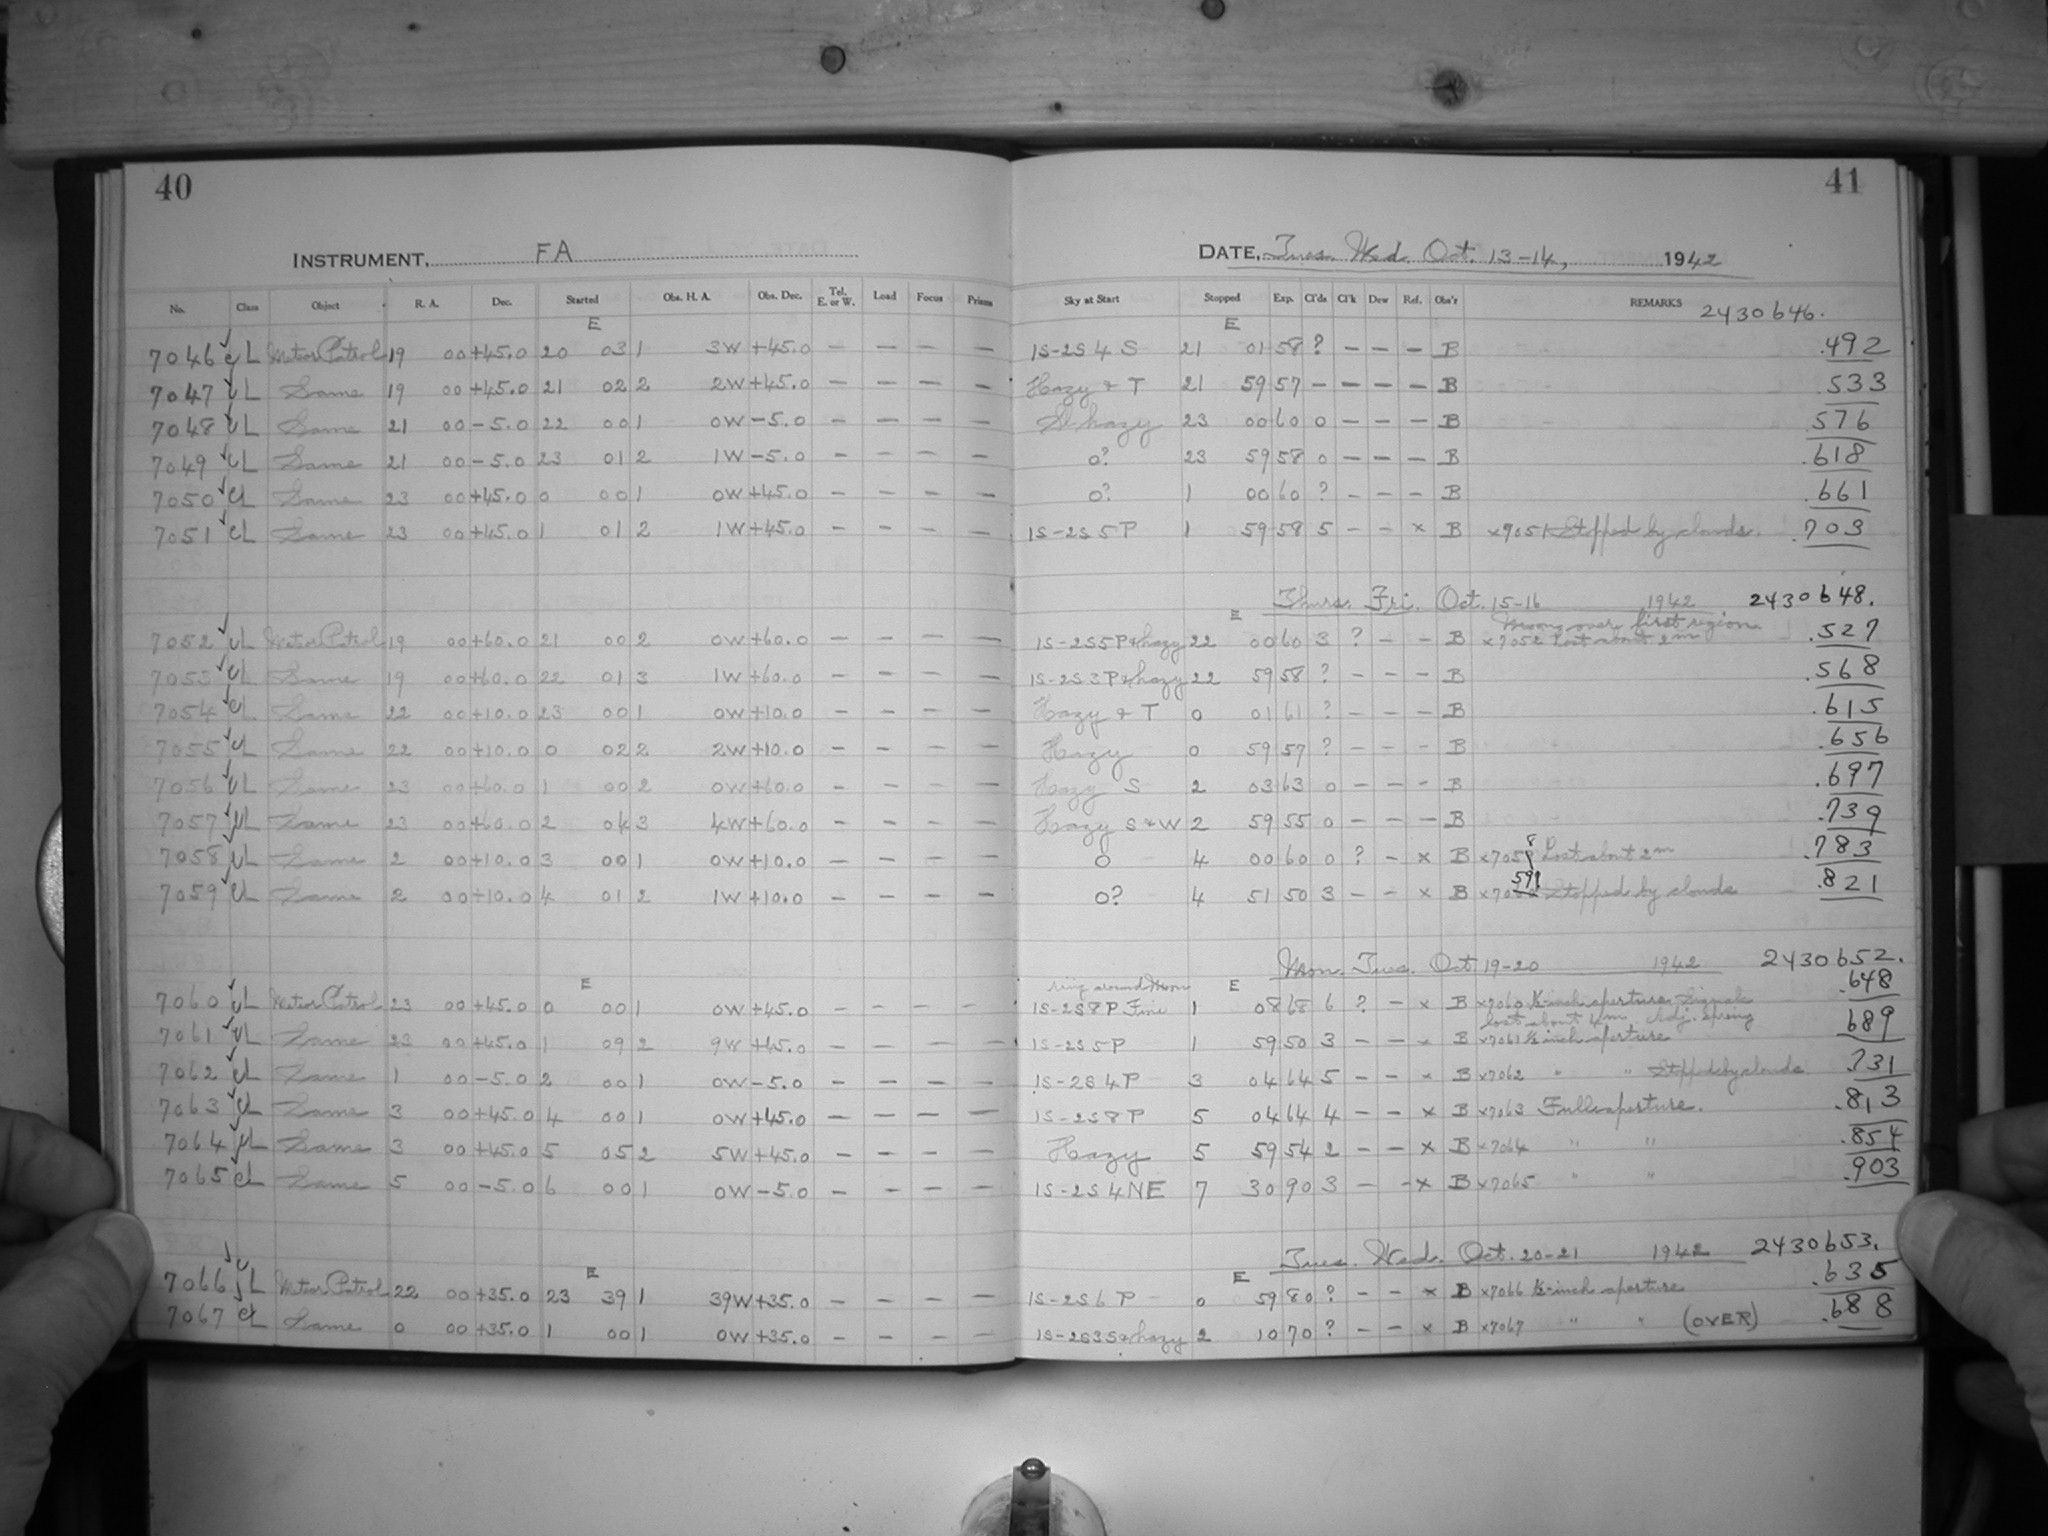 40
INSTRUMENT, FA
No. Class Object R. A. Dec. Started Obs. H. A. Obs. Dec. Tel. E. or W. Load Focus Prism
E
7046 L Meteor Patrol 19 00 +45.0 20 03 1 3W +45.0 — — — —
7047 L Same 19 00 +45.0 21 02 2 2W +45.0 — — — —
7048 L Same 21 00 -5.0 22 00 1 0W -5.0 — — — —
7049 L Same 21 00 -5.0 23 01 2 1W -5.0 — — — —
7050 L Same 23 00 +45.0 0 00 1 0W +45.0 — — — —
7051 L Same 23 00 +45.0 1 01 2 1W +45.0 — — — —
7052 L Meteor Patrol 19 00 +60.0 21 00 2 0W +60.0 — — — —
7053 L Same 19 00 +60.0 22 01 3 1W +60.0 — — — —
7054 L Same 22 00 +10.0 23 00 1 0W +10.0 — — — —
7055 L Same 22 00 +10.0 0 02 2 2W +10.0 — — — —
7056 L Same 23 00 +60.0 1 00 2 0W +60.0 — — — —
7057 L Same 23 00 +60.0 2 04 3 4W +60.0 — — — —
7058 L Same 2 00 +10.0 3 00 1 0W +10.0 — — — —
7059 L Same 2 00 +10.0 4 01 2 1W +10.0 — — — —
E
7060 L Meteor Patrol 23 00 +45.0 0 00 1 0W +45.0 — — — —
7061 L Same 23 00 +45.0 1 09 2 9W +45.0 — — — —
7062 L Same 1 00 -5.0 2 00 1 0W -5.0 — — — —
7063 L Same 3 00 +45.0 4 00 1 0W +45.0 — — — —
7064 L Same 3 00 +45.0 5 05 2 5W +45.0 — — — —
7065 L Same 5 00 -5.0 6 00 1 0W -5.0 — — — —
E
7066 L Meteor Patrol 22 00 +35.0 23 39 1 39W +35.0 — — — —
7067 L Same 0 00 +35.0 1 00 1 0W +35.0 — — — —
41
DATE, Tues. Wed. Oct. 13-14, 1942
Sky at Start Stopped Exp. Cl'ds Cl'k Dew Ref. Obs'r REMARKS 2430646.
E
1S-2S4 S 21 01 58 ? — — — B .492
Hazy & T 21 59 57 — — — — B .533
Sl hazy 23 00 60 0 — — — B .576
0? 23 59 58 0 — — — B .618
0? 1 00 60 ? — — — B .661
1S-2S5P 1 59 58 5 — — x B x7051 Stopped by clouds. .703
Thurs. Fri. Oct. 15-16 1942 2430648.
E Wrong over first region
1S-2S5P & hazy 22 00 60 3 ? — — B x7052 Lost about 2m .527
1S-2S3P & hazy 22 59 58 ? — — — B .568
Hazy & T 0 01 61 ? — — — B .615
Hazy 0 59 57 ? — — — B .656
Hazy S 2 03 63 0 — — — B .697
Hazy S & W 2 59 55 0 — — — B .739
0 4 00 60 0 ? — x B x7058 Lost about 2m .783
0? 4 51 50 3 — — x B x7059 Stopped by clouds .821
Mon. Tues. Oct. 19-20 1942 2430652.
ring around Moon E
1S-2S8P Fine 1 08 68 6 ? — x B x7060 ½-inch aperture Signals .648
lost about 4m Adj. spring
1S-2S5P 1 59 50 3 — — x B x7061 ½ inch aperture .689
1S-2S4P 3 04 64 5 — — x B x7062 " " Stopped by clouds .731
1S-2S8P 5 04 64 4 — — x B x7063 Full aperture. .813
Hazy 5 59 54 2 — — x B x7064 " " .854
1S-2S4NE 7 30 90 3 — — x B x7065 " " .903
Tues. Wed. Oct. 20-21 1942 2430653.
E
1S-2S6P 0 59 80 ? — — x B x7066 ½-inch aperture .635
1S-2S3S & hazy 2 10 70 ? — — x B x7067 " " (OVER) .688